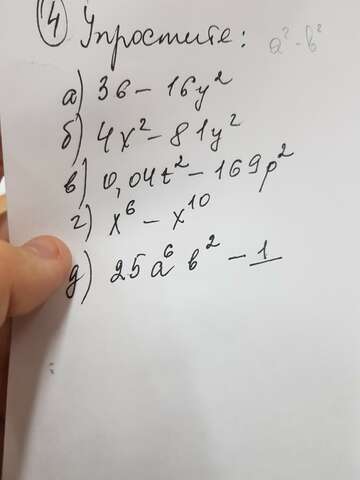 4) Упростите: a² - b²
а) 36 - 16y²
б) 4x² - 81y²
в) 0,04t² - 169p²
г) x⁶ - x¹⁰
д) 25a⁶b² - 1